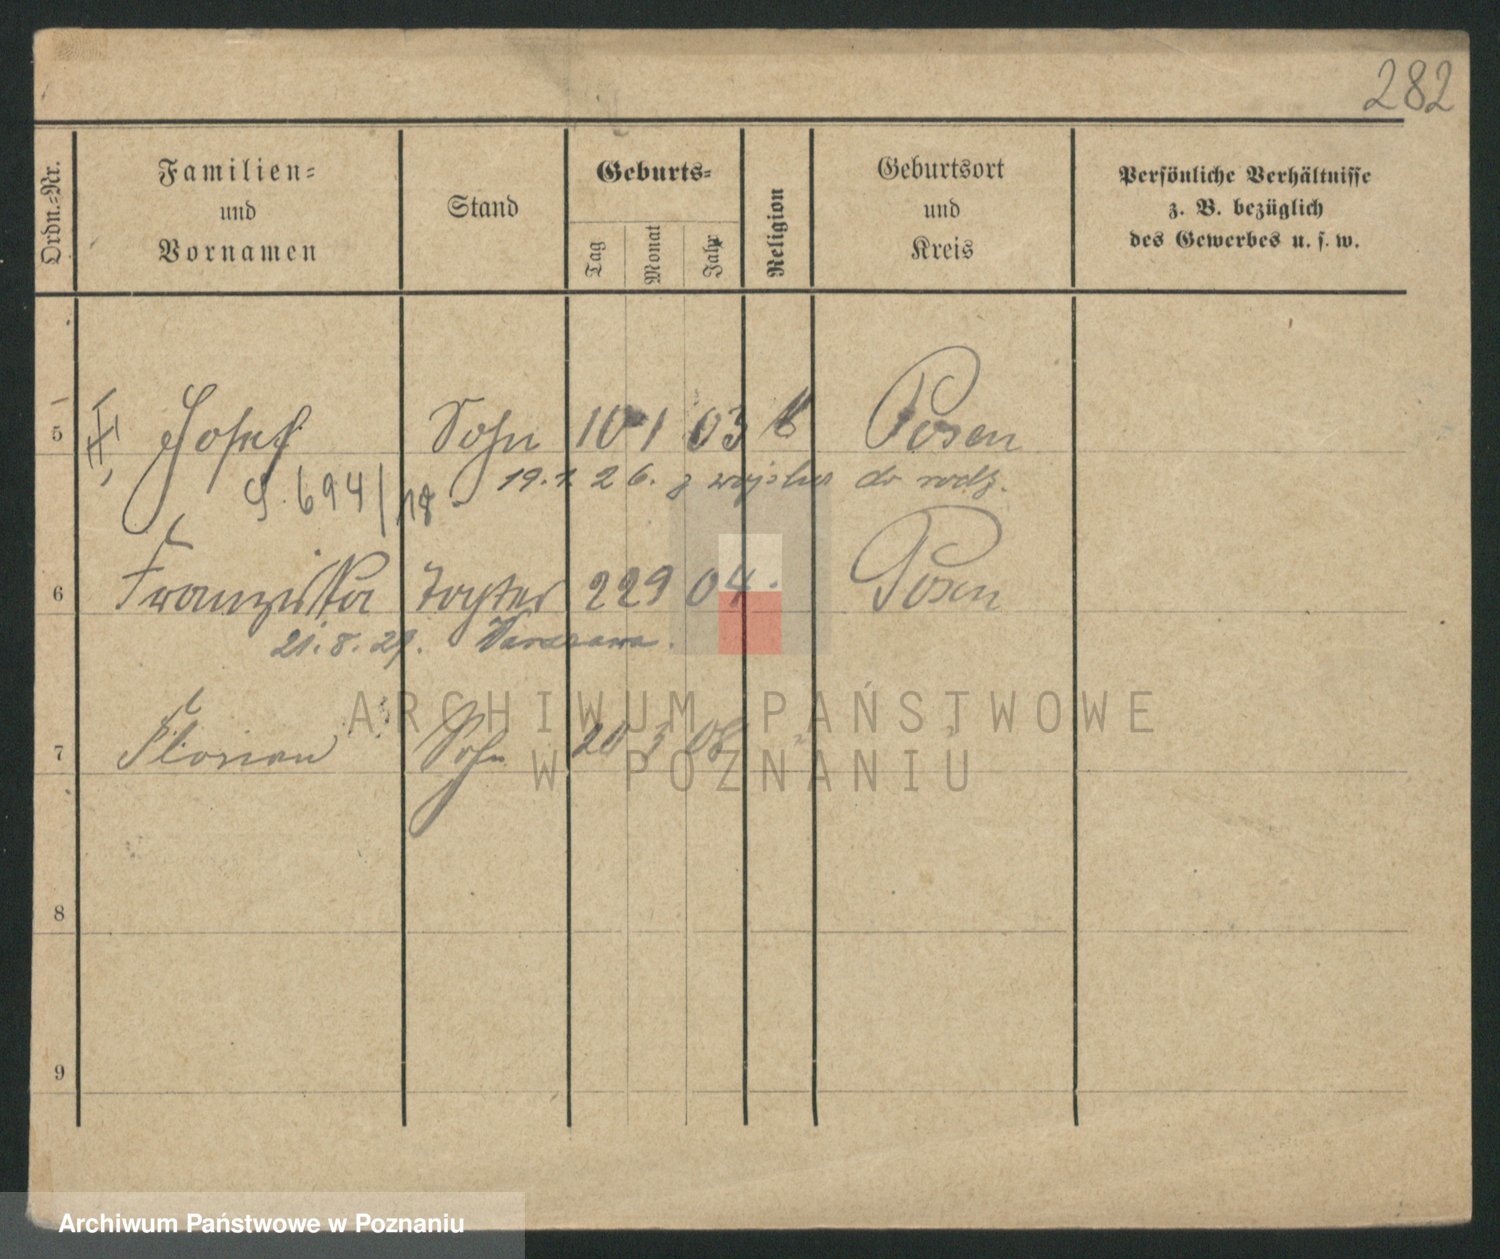 282
Ordn.-Nr.
Familien-
und
Vornamen
Stand
Geburts-
Tag
Monat
Jahr
Religion
Geburtsort
und
Kreis
Persönliche Verhältnisse
z. B. bezüglich
des Gewerbes u. s. w.
5 Josef Sohn 10 1 03 k Posen
S. 694/18 19.1.26. z wojska do rodz.
6 Franziska Tochter 22 9 04 Posen
21.8.29. Warszawa.
7 Florian Sohn 20 3 08
8
9
ARCHIWUM PAŃSTWOWE
W POZNANIU
Archiwum Państwowe w Poznaniu